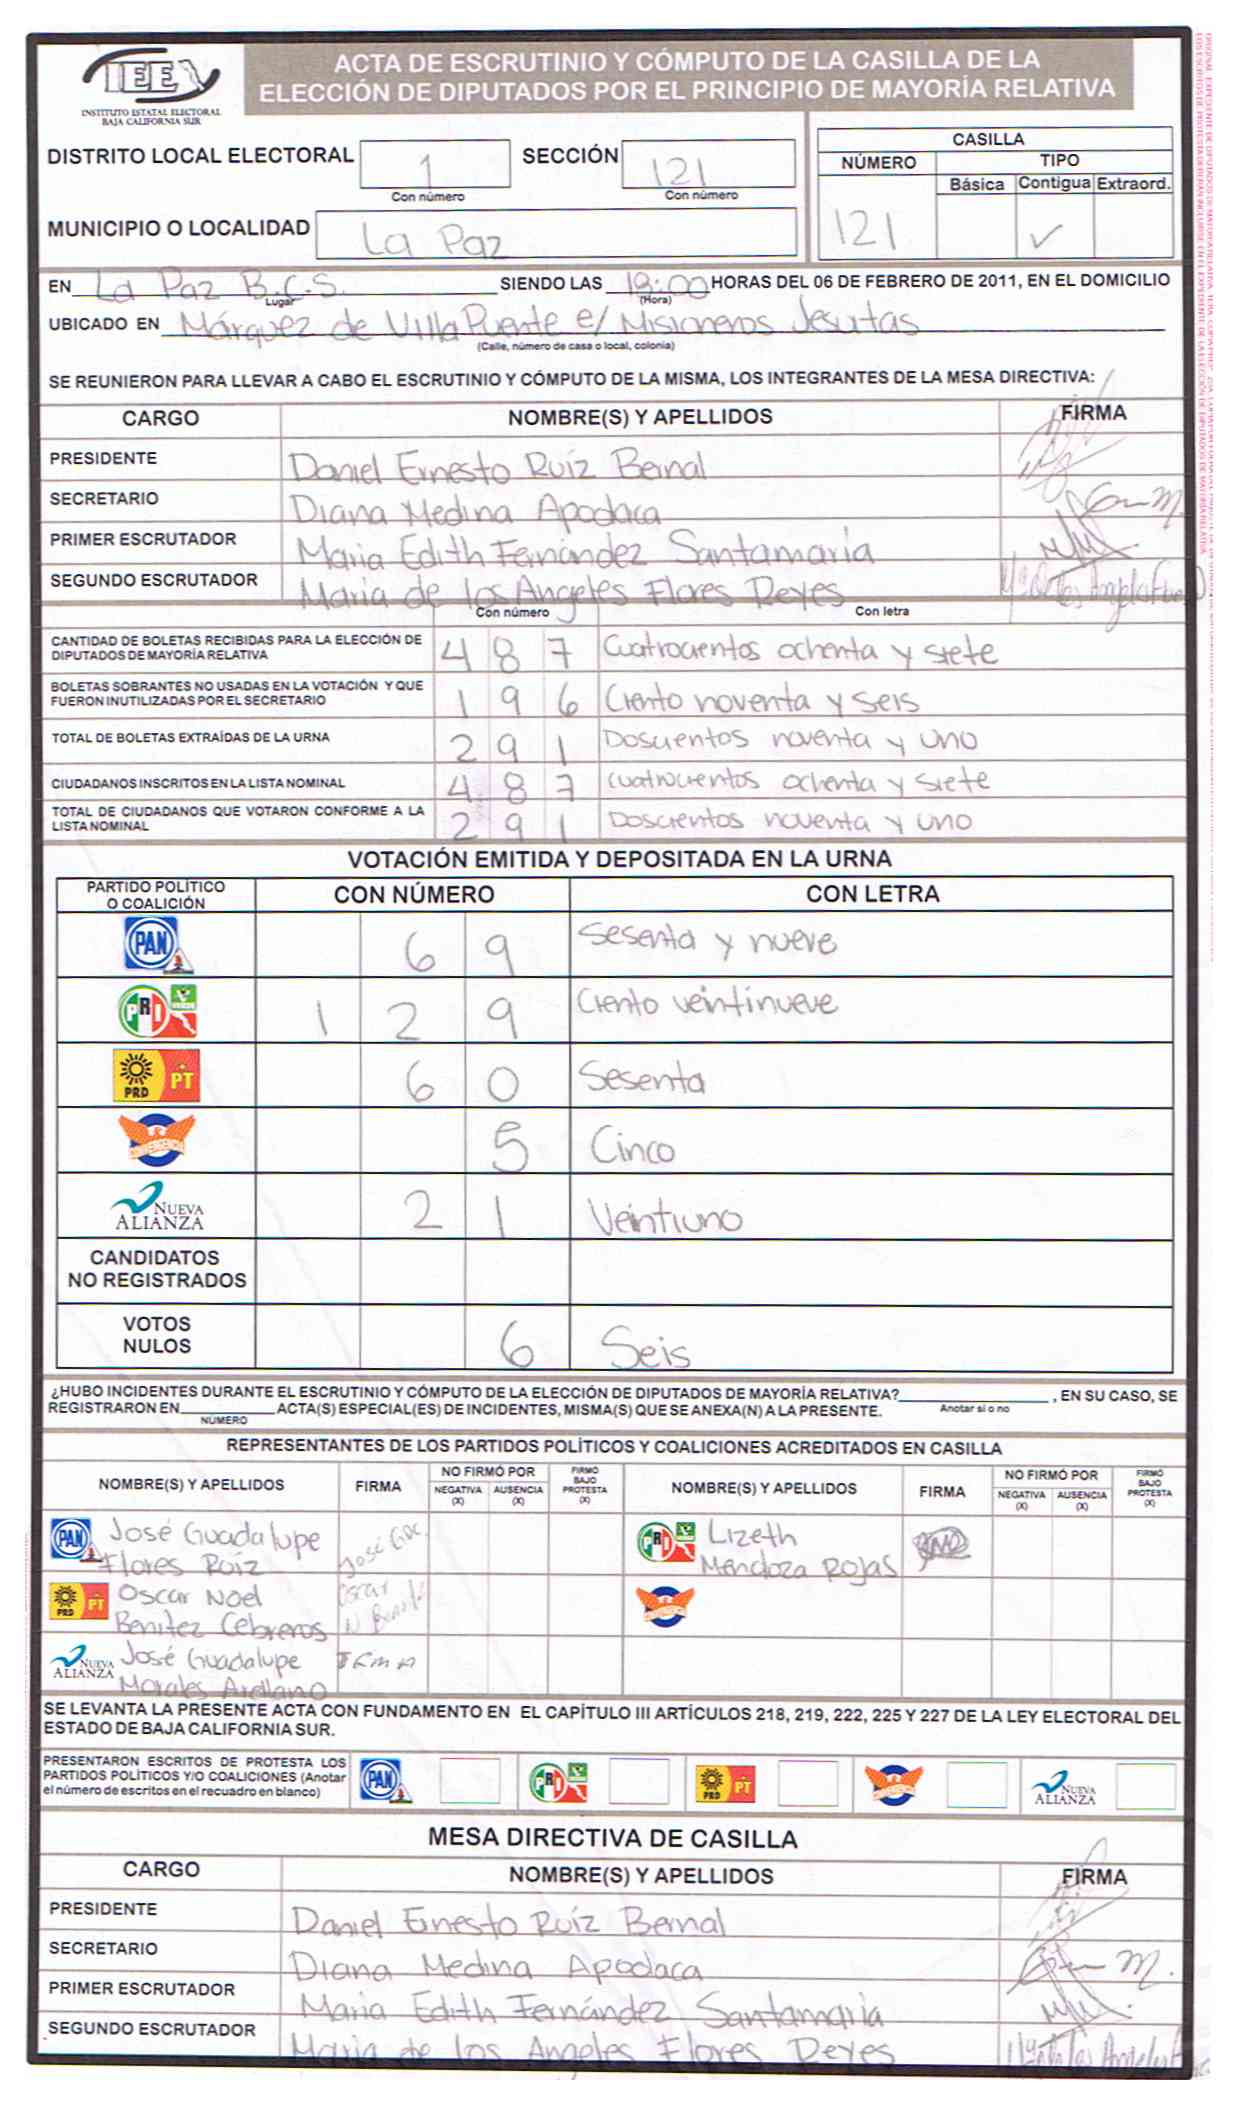 IEEX
INSTITUTO ESTATAL ELECTORAL
BAJA CALIFORNIA SUR
ACTA DE ESCRUTINIO Y CÓMPUTO DE LA CASILLA DE LA
ELECCIÓN DE DIPUTADOS POR EL PRINCIPIO DE MAYORÍA RELATIVA
DISTRITO LOCAL ELECTORAL 1 SECCIÓN 121
Con número Con número
MUNICIPIO O LOCALIDAD La Paz
CASILLA
NÚMERO TIPO
Básica Contigua Extraord.
121 ✓
EN La Paz B.C.S. SIENDO LAS 18:00 HORAS DEL 06 DE FEBRERO DE 2011, EN EL DOMICILIO
Lugar (Hora)
UBICADO EN Márquez de Villa Puente e/ Misioneros Jesuitas
(Calle, número de casa o local, colonia)
SE REUNIERON PARA LLEVAR A CABO EL ESCRUTINIO Y CÓMPUTO DE LA MISMA, LOS INTEGRANTES DE LA MESA DIRECTIVA:
CARGO NOMBRE(S) Y APELLIDOS FIRMA
PRESIDENTE Daniel Ernesto Ruíz Bernal
SECRETARIO Diana Medina Apodaca
PRIMER ESCRUTADOR Maria Edith Fernández Santamaría
SEGUNDO ESCRUTADOR María de los Angeles Flores Reyes
Con número Con letra
CANTIDAD DE BOLETAS RECIBIDAS PARA LA ELECCIÓN DE
DIPUTADOS DE MAYORÍA RELATIVA 4 8 7 Cuatrocientos ochenta y siete
BOLETAS SOBRANTES NO USADAS EN LA VOTACIÓN Y QUE
FUERON INUTILIZADAS POR EL SECRETARIO 1 9 6 Ciento noventa y seis
TOTAL DE BOLETAS EXTRAÍDAS DE LA URNA 2 9 1 Doscientos noventa y uno
CIUDADANOS INSCRITOS EN LA LISTA NOMINAL 4 8 7 cuatrocientos ochenta y siete
TOTAL DE CIUDADANOS QUE VOTARON CONFORME A LA
LISTA NOMINAL 2 9 1 Doscientos noventa y uno
VOTACIÓN EMITIDA Y DEPOSITADA EN LA URNA
PARTIDO POLÍTICO
O COALICIÓN CON NÚMERO CON LETRA
PAN 6 9 Sesenta y nueve
PRI VERDE 1 2 9 Ciento veintinueve
PRD PT 6 0 Sesenta
CONVERGENCIA 5 Cinco
NUEVA
ALIANZA 2 1 Veintiuno
CANDIDATOS
NO REGISTRADOS
VOTOS
NULOS 6 Seis
¿HUBO INCIDENTES DURANTE EL ESCRUTINIO Y CÓMPUTO DE LA ELECCIÓN DE DIPUTADOS DE MAYORÍA RELATIVA? , EN SU CASO, SE
REGISTRARON EN ACTA(S) ESPECIAL(ES) DE INCIDENTES, MISMA(S) QUE SE ANEXA(N) A LA PRESENTE. Anotar si o no
NÚMERO
REPRESENTANTES DE LOS PARTIDOS POLÍTICOS Y COALICIONES ACREDITADOS EN CASILLA
NOMBRE(S) Y APELLIDOS FIRMA NO FIRMÓ POR NEGATIVA (X) AUSENCIA (X) FIRMÓ BAJO PROTESTA (X) NOMBRE(S) Y APELLIDOS FIRMA NO FIRMÓ POR NEGATIVA (X) AUSENCIA (X) FIRMÓ BAJO PROTESTA (X)
PAN José Guadalupe PRI Lizeth
Flores Ruíz Mendoza Rojas
PRD PT Oscar Noel Oscar
Benitez Cebreros
NUEVA ALIANZA José Guadalupe
Morales Arellano
SE LEVANTA LA PRESENTE ACTA CON FUNDAMENTO EN EL CAPÍTULO III ARTÍCULOS 218, 219, 222, 225 Y 227 DE LA LEY ELECTORAL DEL
ESTADO DE BAJA CALIFORNIA SUR.
PRESENTARON ESCRITOS DE PROTESTA LOS
PARTIDOS POLÍTICOS Y/O COALICIONES (Anotar
el número de escritos en el recuadro en blanco) PAN PRI PRD PT NUEVA ALIANZA
MESA DIRECTIVA DE CASILLA
CARGO NOMBRE(S) Y APELLIDOS FIRMA
PRESIDENTE Daniel Ernesto Ruíz Bernal
SECRETARIO Diana Medina Apodaca
PRIMER ESCRUTADOR Maria Edith Fernández Santamaria
SEGUNDO ESCRUTADOR Maria de los Angeles Flores Reyes